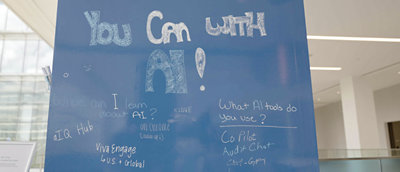 You Can with
AI!
can I learn
about AI?
eIQ Hub
Viva Engage
What AI tools do
you use?
Co Pilot
Audit Chat